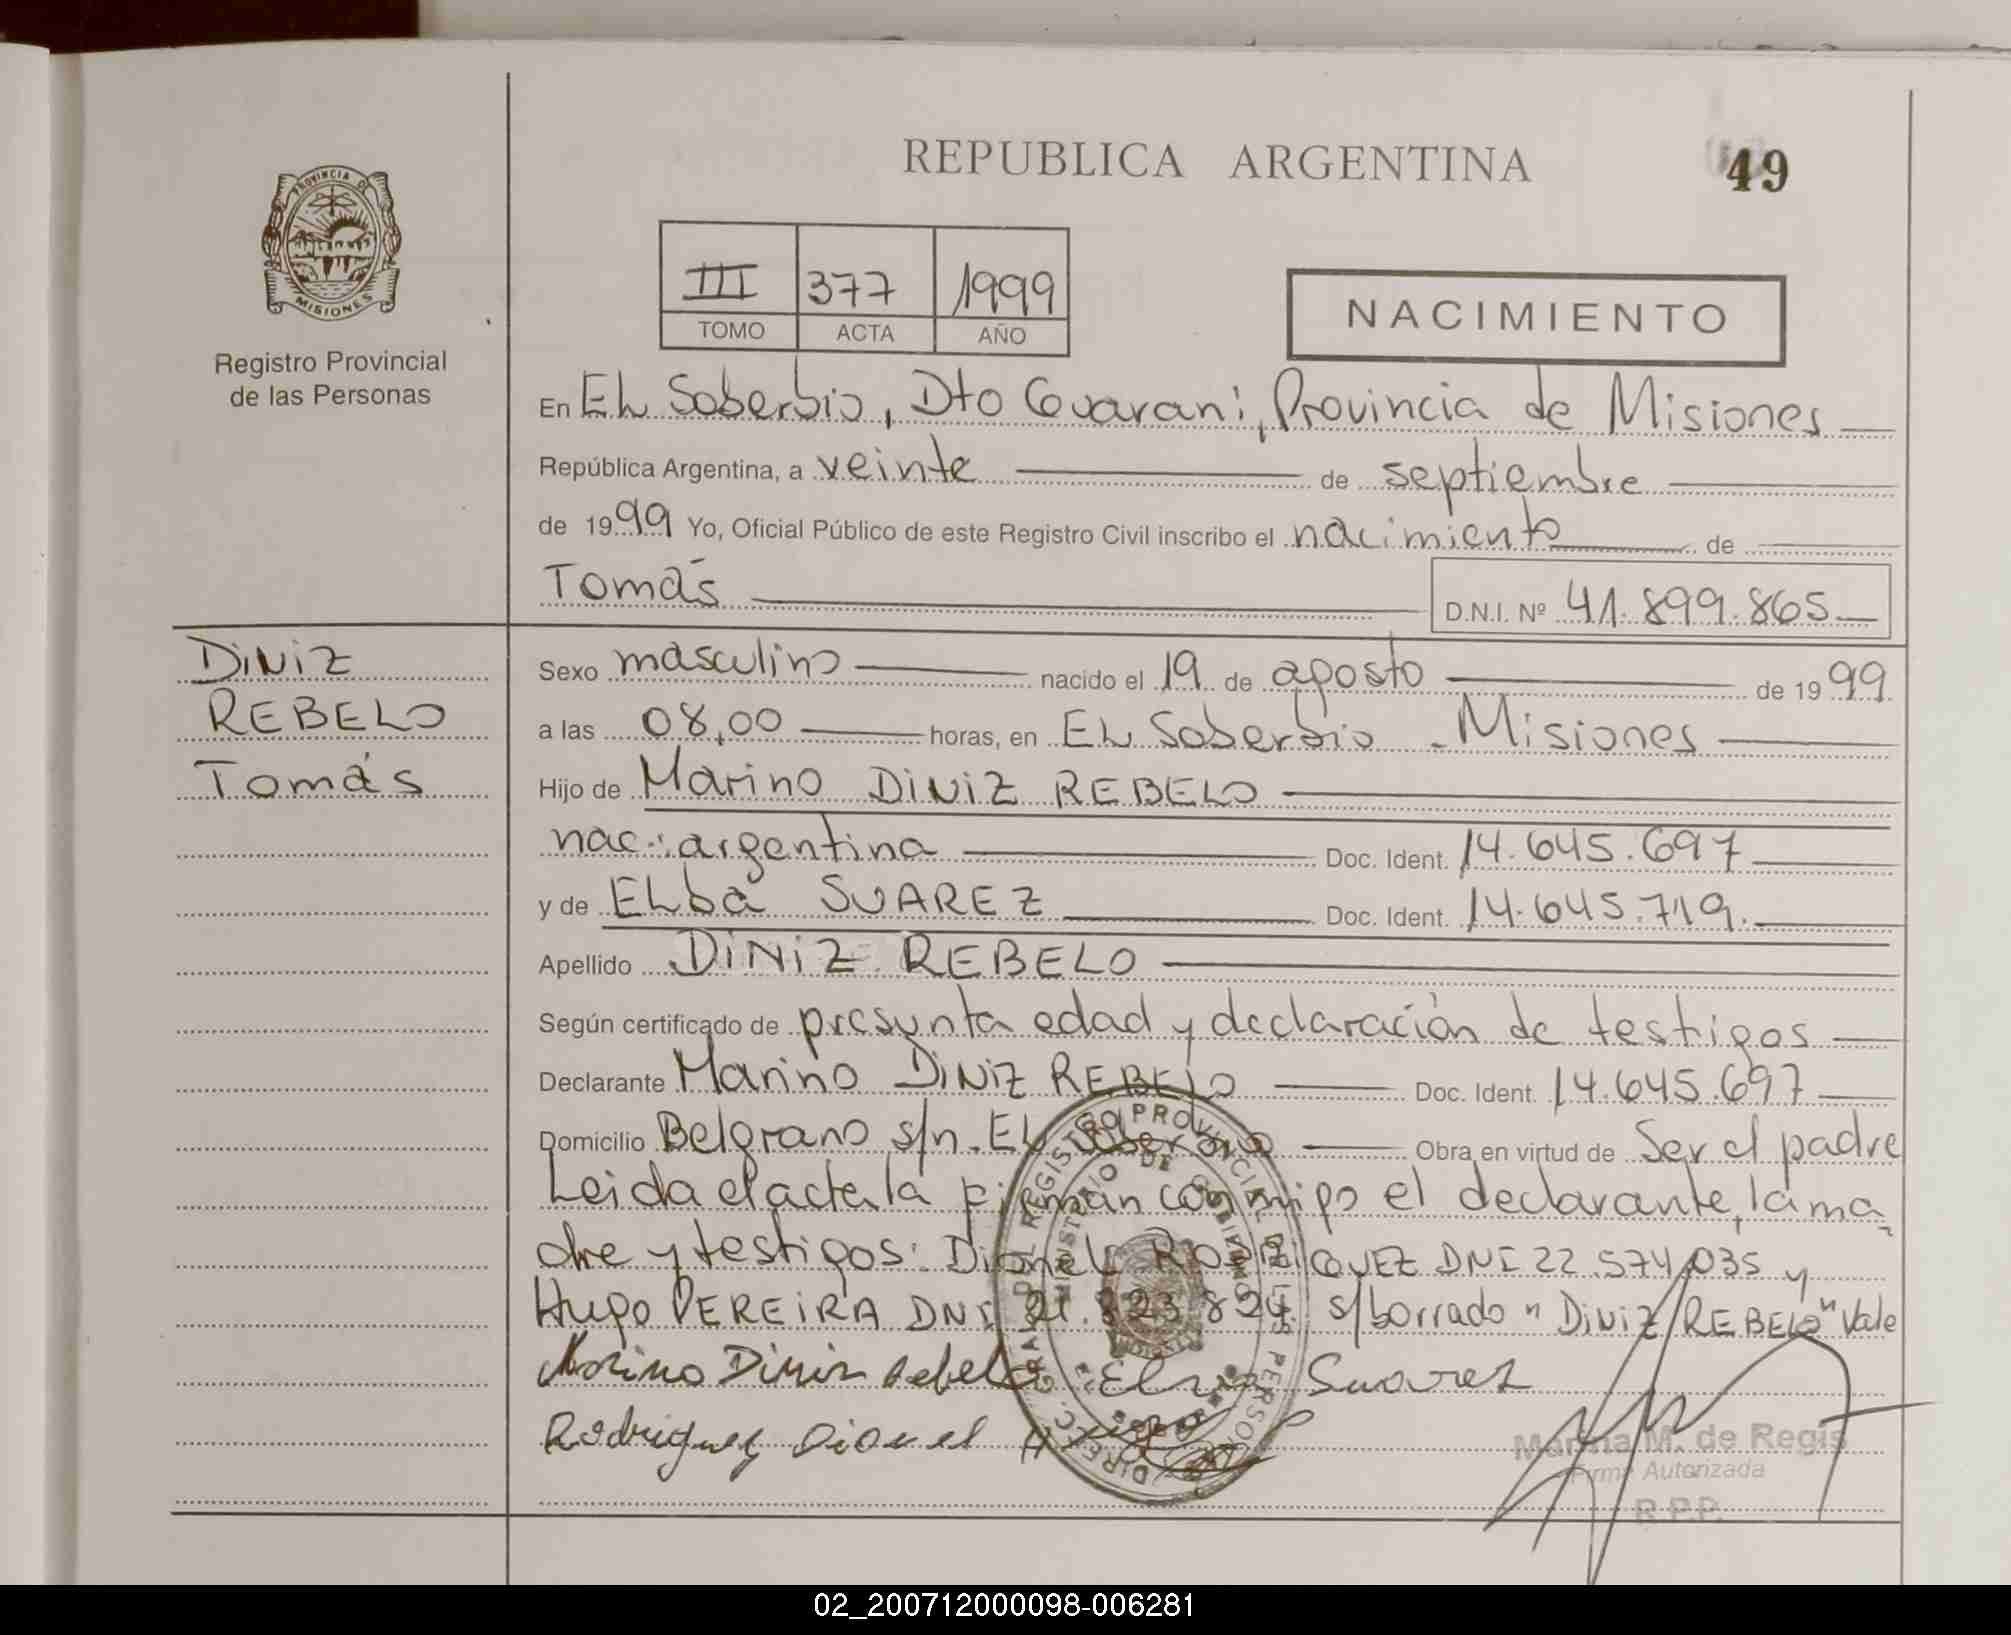 REPUBLICA ARGENTINA
49
PROVINCIA D
MISIONES
Registro Provincial
de las Personas
III 377 1999
TOMO ACTA AÑO
NACIMIENTO
En EL Soberbio, Dto Guarani, Provincia de Misiones
República Argentina, a veinte de septiembre
de 1999 Yo, Oficial Público de este Registro Civil inscribo el nacimiento de
Tomás D.N.I. Nº 41.899.865
DINIZ
REBELO
Tomás
Sexo masculino nacido el 19 de agosto de 1999
a las 08,00 horas, en EL Soberbio - Misiones
Hijo de Marino DINIZ REBELO
nac: argentina Doc. Ident. 14.645.697
y de ELba SUAREZ Doc. Ident. 14.645.719.
Apellido DINIZ REBELO
Según certificado de presunta edad y declaración de testigos
Declarante Marino DINIZ REBELO Doc. Ident. 14.645.697
Domicilio Belgrano s/n. EL Soberbio Obra en virtud de Ser el padre
Leida el acta la firman conmigo el declarante, la ma-
dre y testigos: Dionel RODRIGUEZ DNI 22.574.035 y
Hugo PEREIRA DNI 21.323.824 s/borrado "DINIZ REBELO" Vale
Marino Diniz Rebelo Elva Suarez
Rodriguez Dionel
DIREC. GRAL. DEL REGISTRO PROVINCIAL DE LAS PERSONAS
MINISTERIO DE GOBIERNO
Marina M. de Regis
Firma Autorizada
R.P.P.
02_200712000098-006281